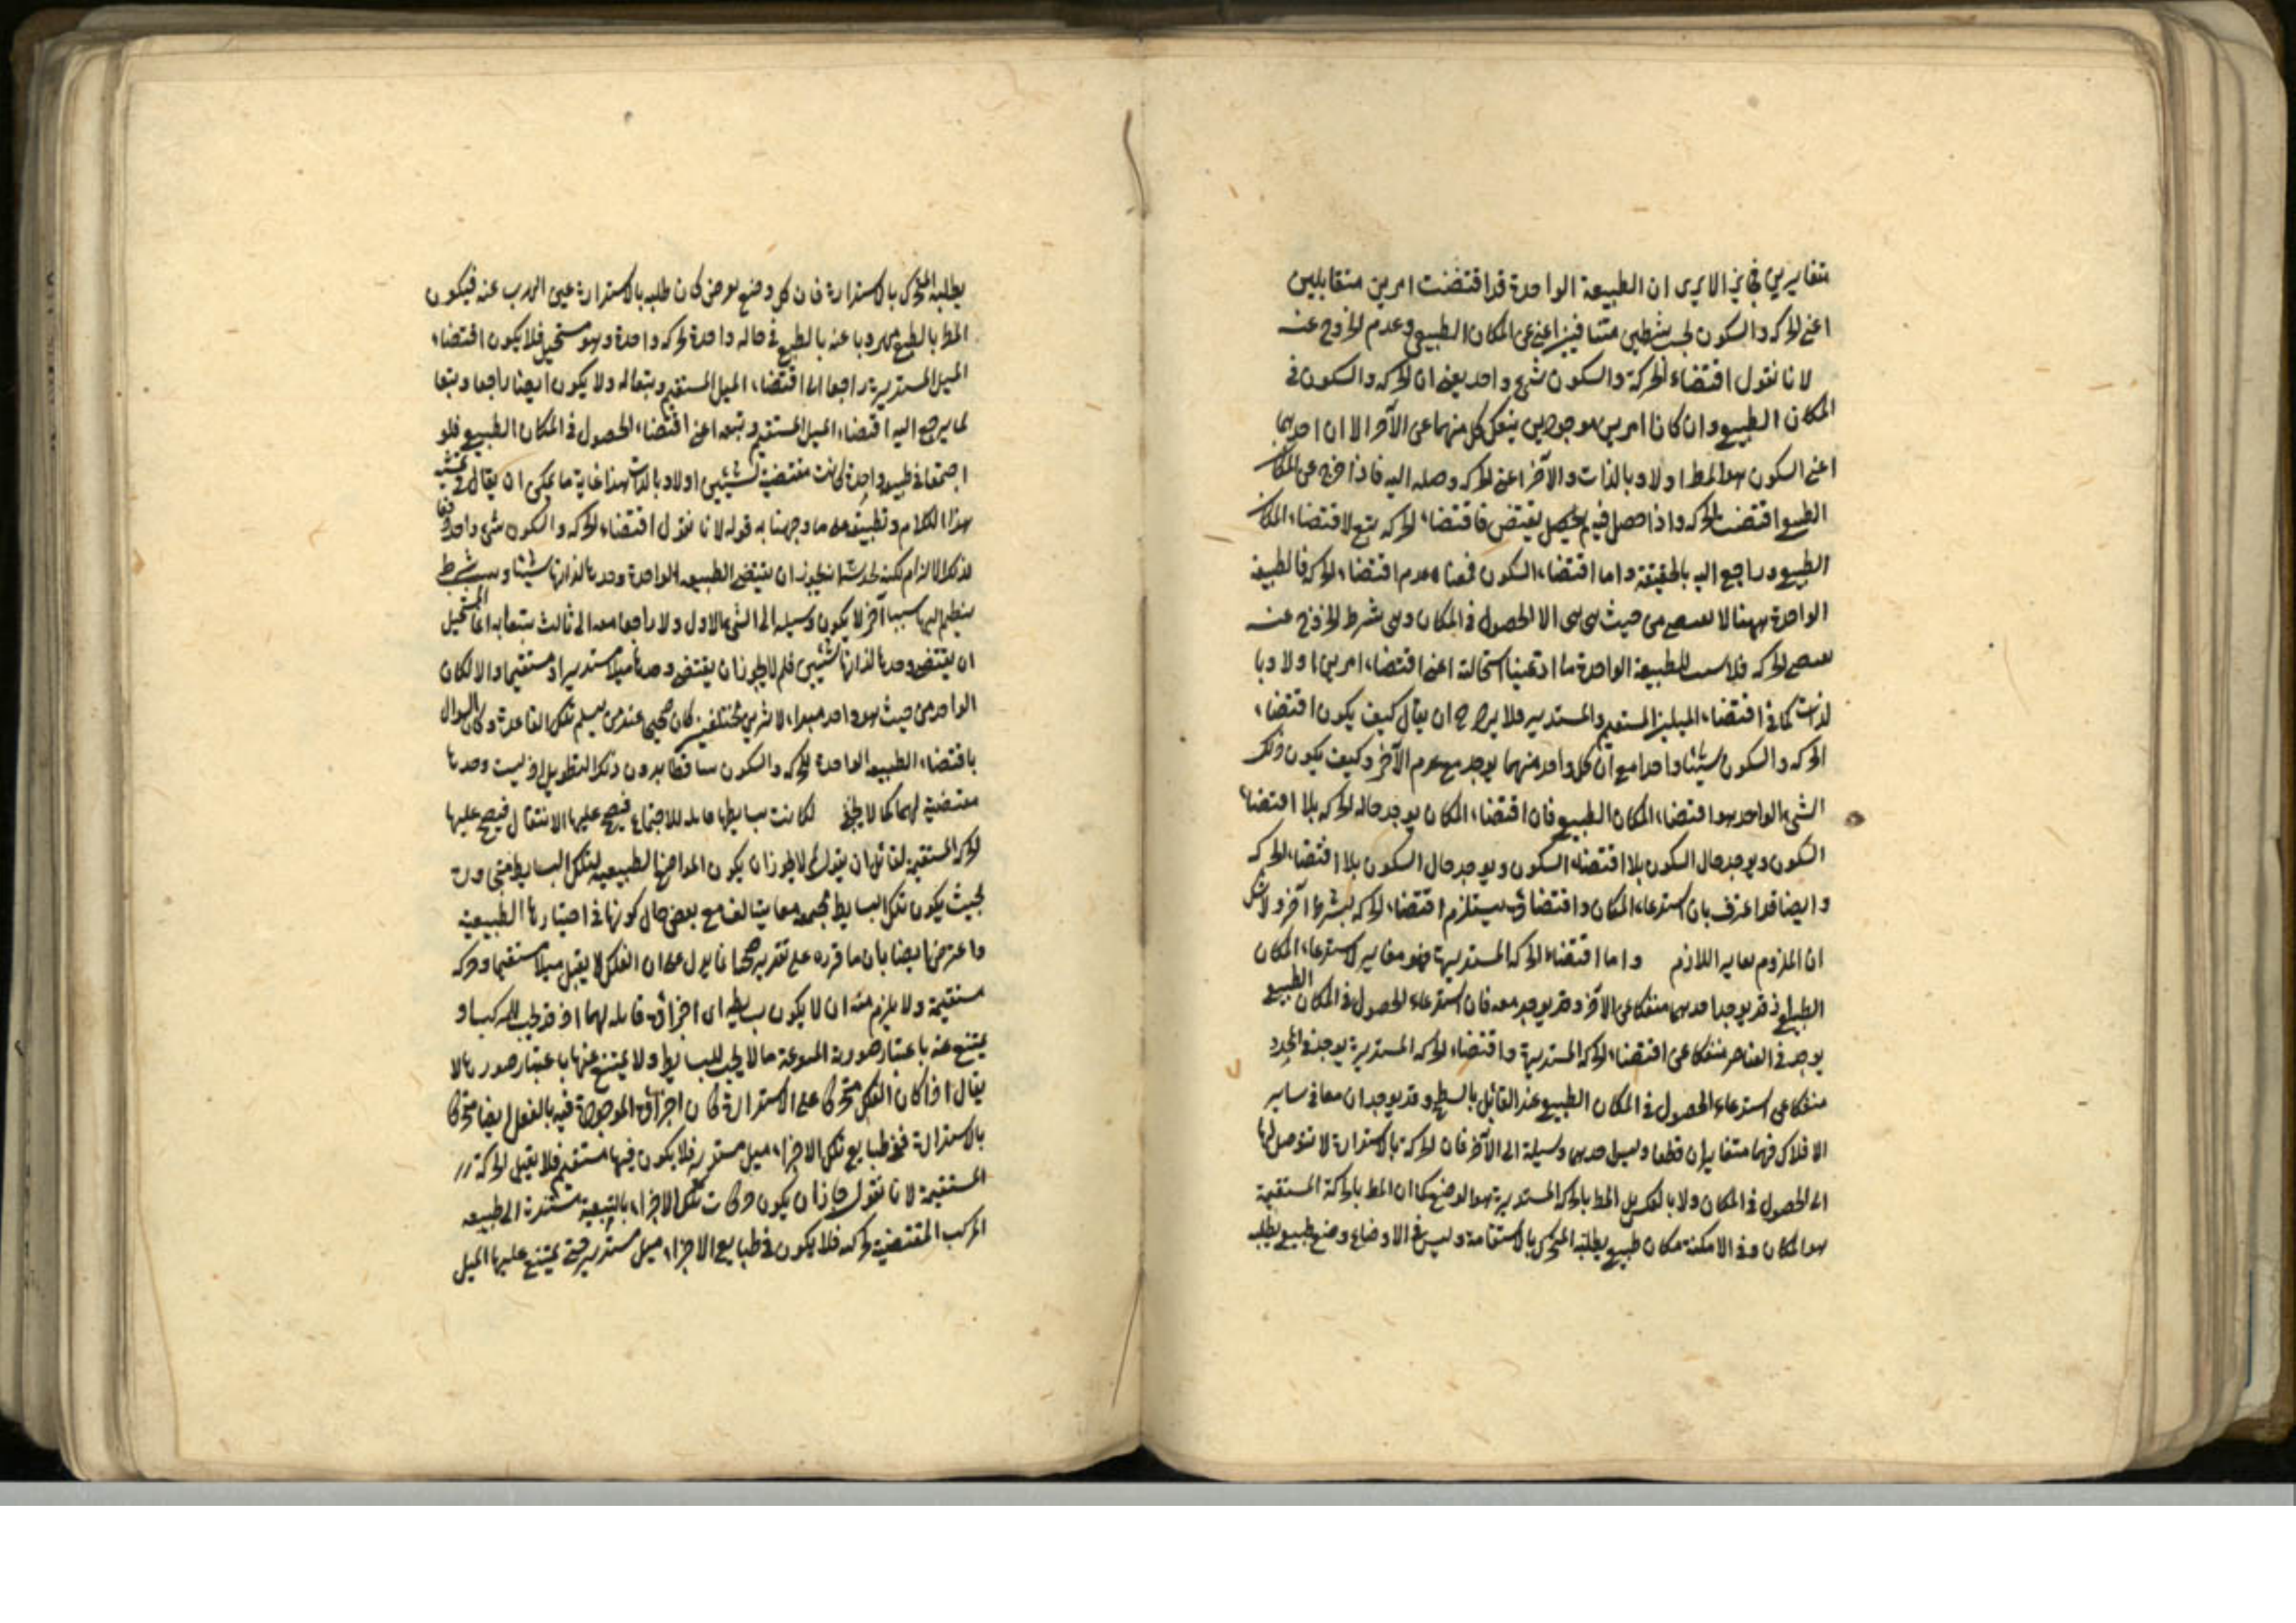 متغايرين فان الا يرى ان الطبيعة الواحدة قد اقتضت امرين متقابلين
اعنى الحركه والسكون بحسب شرطين متنافيين اعنى عن المكان الطبيعى وعدم الخروج عنه
لانا نقول اقتضاء الحركة والسكون شئ واحد يعنى ان الحركه والسكون فى
المكان الطبيعى وان كانا امرين موجودين ينفك كل منهما عن الآخر الا ان احديهما
اعنى السكون هو المط اولا وبالذات والآخر اعنى الحركه وصله اليه فاذا خرج عن المكان
الطبيعى اقتضت الحركه واذا حصل فيه لم يقتض فاقتضاء الحركه تبع لاقتضاء المكان
الطبيعى وراجع اليه بالحقيقة واما اقتضاء السكون فمعناه عدم اقتضاء الحركه فالطبيعة
الواحدة ههنا لا تقتضى من حيث هى هى الا الحصول فى المكان وهى بشرط الخروج عنه
تقتضى الحركه فلا للطبيعة الواحدة ما ادعينا استحالته اعنى اقتضاء امرين اولا وبا
لذات كما فى اقتضاء الميلين المستقيم والمستدير فلا يرد ح ان يقال كيف يكون اقتضاء
الحركه والسكون شيئا واحدا مع ان كل واحد منهما يوجد مع عدم الآخر وكيف يكون ذلك
الشئ الواحد هو اقتضاء المكان الطبيعى فان اقتضاء المكان يوجد حاله الحركه بلا اقتضاء
السكون ويوجد حال السكون بلا اقتضاء السكون ويوجد حال السكون بلا اقتضاء الحركه
وايضا قد اعترف بان استدعاء المكان واقتضائه يستلزم اقتضاء الحركه بشرط آخر ولا شك
ان الملزوم يغاير اللازم واما اقتضاء الحركه المستديرة فهو مغاير لاستدعاء المكان
الطبيعى اذ قد يوجد احدهما منفكا عن الآخر وقد يوجد معه فان استدعاء الحصول فى المكان الطبيعى
يوجد فى العناصر منفكا عن اقتضاء الحركه المستديرة واقتضاء الحركه المستديرة يوجد فى المحدد
منفكا عن استدعاء الحصول فى المكان الطبيعى عند القائل بالسطح وقد يوجدان معا فى ساير
الافلاك فهما متغايران قطعا وليس احدهما وسيلة الى الآخر فان الحركة بالاستدارة لا توصل لها
الى الحصول فى المكان ولا بالعكس بل المط بالحركه المستديرة هو الوضع كما ان المط بالحركة المستقيمة
هو المكان وفى الامكنة مكان طبيعى يطلبه المتحرك بالاستقامة وليس فى الاوضاع وضع طبيعى يطلبه
يطلبه المتحرك بالاستدارة فان كل وضع يفرض كان طلبه بالاستدارة عين الهرب عنه فيكون
المط بالطبع مهروبا عنه بالطبع فى حاله واحدة لحركه واحدة وهو مستحيل فلا يكون اقتضاء
الميل المستديرة راجعا الى اقتضاء الميل المستقيم وتبعا له ولا يكون ايضا راجعا وتبعا
لما يرجع اليه اقتضاء الميل المستقيم وتبعه اعنى اقتضاء الحصول فى المكان الطبيعى فلو
اجتمعا فى طبيعه واحدة كانت مقتضية لشيئين اولا وبالذات هذا غاية ما يمكن ان يقال فى تمشية
هذا الكلام وتطبيقه على ما وجهنا به قوله لانا نقول اقتضاء الحركه والسكون شئ واحد دفعا
لذلك الالزام لكنه يجوز ان يقتضى الطبيعه الواحدة وحدها لذاتها شيئا وبسبب شرط
ينظم اليها سببا آخر لا يكون وسيله الى الشئ الاول ولا راجعا معه الى ثالث يتبعانه انما المستحيل
ان يقتضى وحدها لذاتها شيئين فلم لا يجوز ان يقتضى وحدها ميلا مستديرا او مستقيما والا لكان
الواحد من حيث هو واحد مبدا لاثرين مختلفين كان صحيحا عند من يسلم تلك القاعدة وكان السوال
باقتضاء الطبيعه الواحدة الحركه والسكون ساقطا بدون ذلك التطويل اذ ليست وحدها
مقتضية لهما كما لا يخفى لكانت بسايطها قابله للاجتماع فيصح عليها الانتقال فيصح عليها
الحركه المستقيمة لقائل ان يقول لم لا يجوز ان يكون المواضع الطبيعيه لتلك البسايط متجاورة
بحيث يكون تلك البسايط مجتمعه معا يتألف مع بعض حال كونها فى احيازها الطبيعية
واعترض ايضا بان ما قرره على تقدير صحته انما يدل على ان الفلك لا يقبل ميلا مستقيما وحركه
مستقيمة ولا يلزم منه ان لا يكون بسايطه اى اجزاؤه قابله لهما اذ قد يجب للمركب او
يمتنع عنه باعتبار صورته المنوعة ما لا يجب للبسايط ولا يمتنع عنها باعتبار صورها لا
يقال اذا كان الفلك متحركا على الاستدارة كان اجزاؤه الموجودة فيه بالفعل ايضا متحركا
بالاستدارة ففى طبايع تلك الاجزاء ميل مستدير فلا يكون فيها مستقيم فلا يقبل الحركة
المستقيمة لانا نقول جاز ان يكون حركات تلك الاجزاء بالتبعية مستندة الى طبيعه
المركب المقتضية لحركته فلا يكون فى طبايع الاجزاء ميل مستدير حتى يمتنع عليها الميل